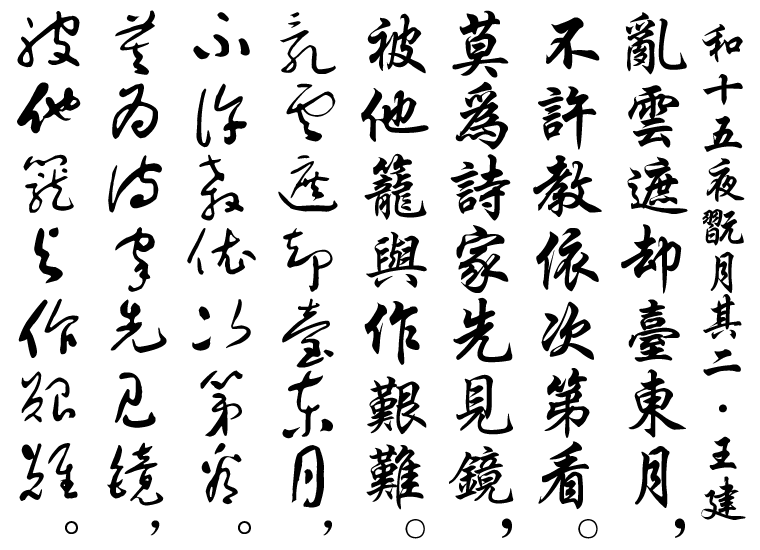 和十五夜翫月其二・王建
亂雲遮却臺東月，
不許教依次第看。
莫爲詩家先見鏡，
被他籠與作艱難。
亂雲遮却臺東月，
不許教依次第看。
莫為詩家先見鏡，
被他籠與作艱難。